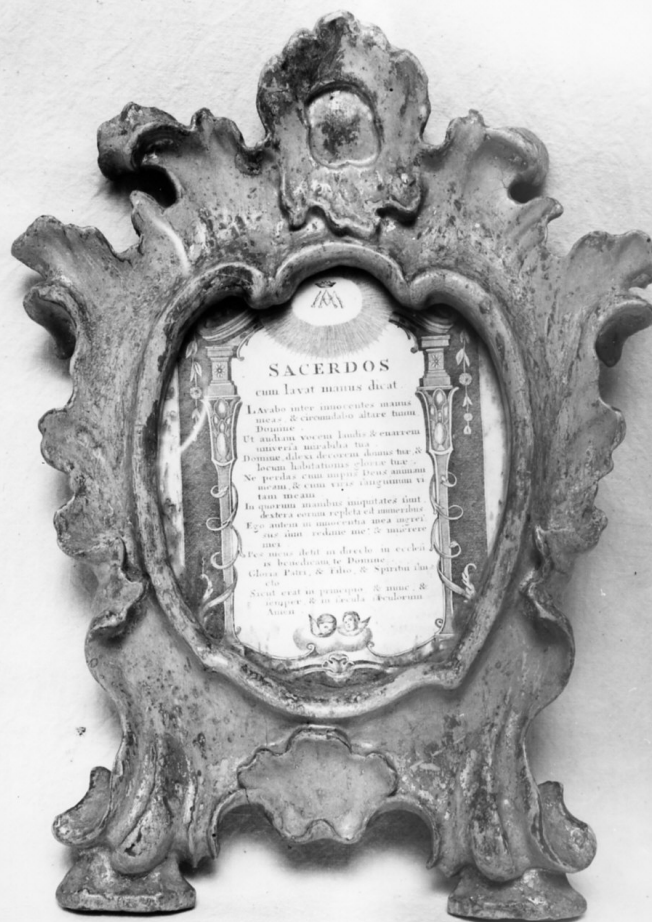 SACERDOS
cum lavat manus dicat.
LAvabo inter innocentes manus
meas, & circumdabo altare tuum
Domine.
Ut audiam vocem laudis & enarrem
universa mirabilia tua.
Domine, dilexi decorem domus tuæ, &
locum habitationis gloriæ tuæ.
Ne perdas cum impiis Deus animam
meam, & cum viris sanguinum vi
tam meam
In quorum manibus iniquitates sunt
dextera eorum repleta est muneribus
Ego autem in innocentia mea ingres
sus sum redime me & miserere
mei.
Pes meus stetit in directo in ecclesi
is benedicam te Domine.
Gloria Patri, & Filio, & Spiritui San
cto
Sicut erat in principio, & nunc, &
semper, & in sæcula sæculorum
Amen